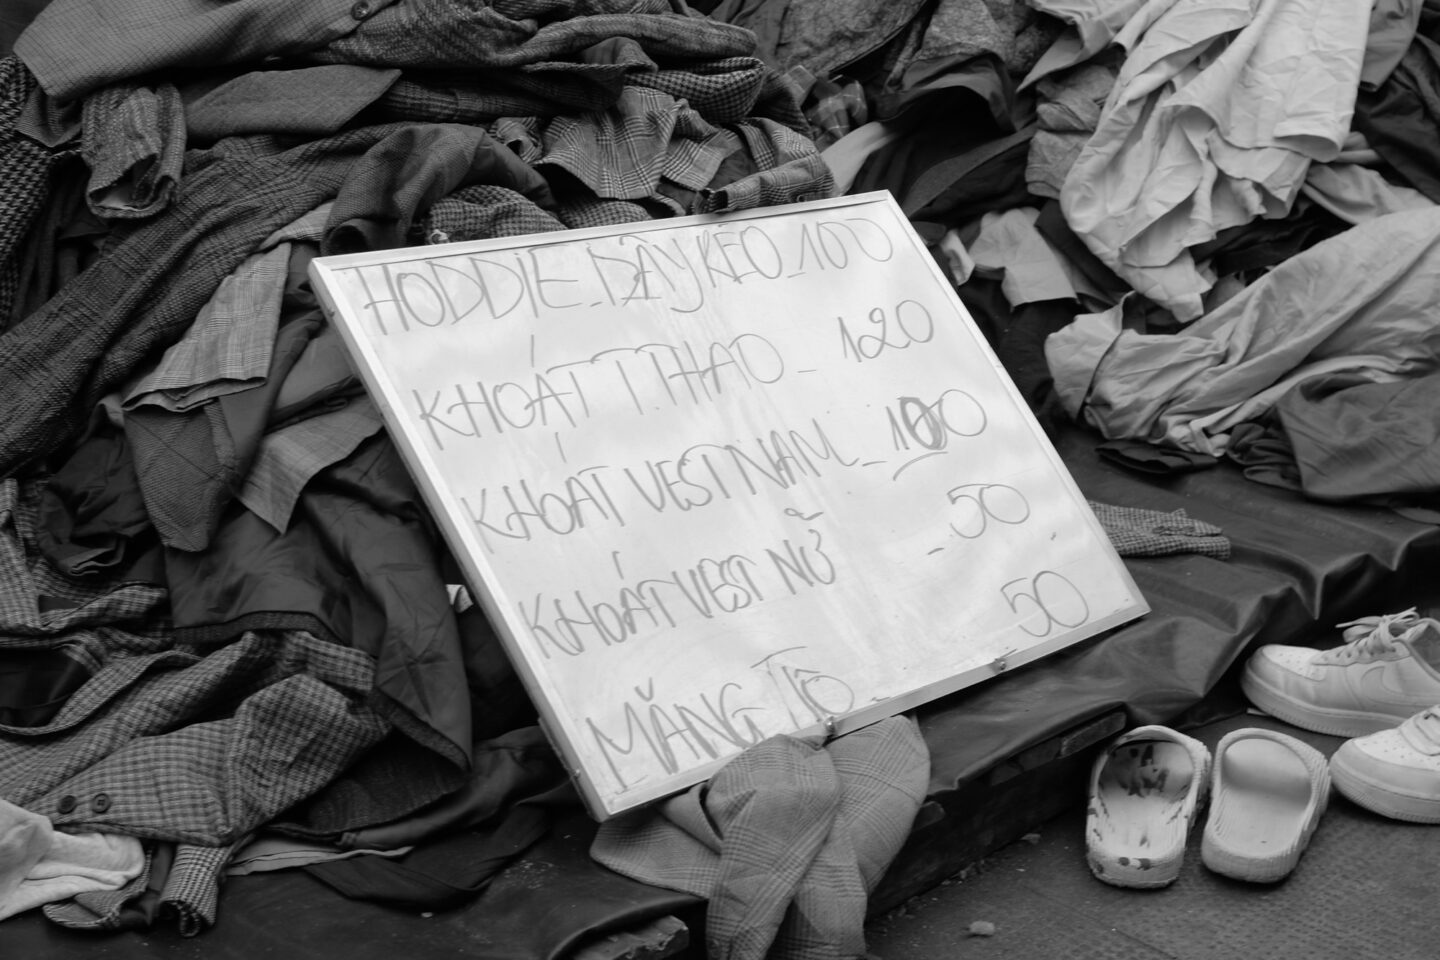 HODDIE. DÂY KÉO_100
KHOÁT T.THAO_ 120
KHOÁT VEST NAM_100
KHOÁT VEST NỮ _50
MĂNG TÔ_ 50